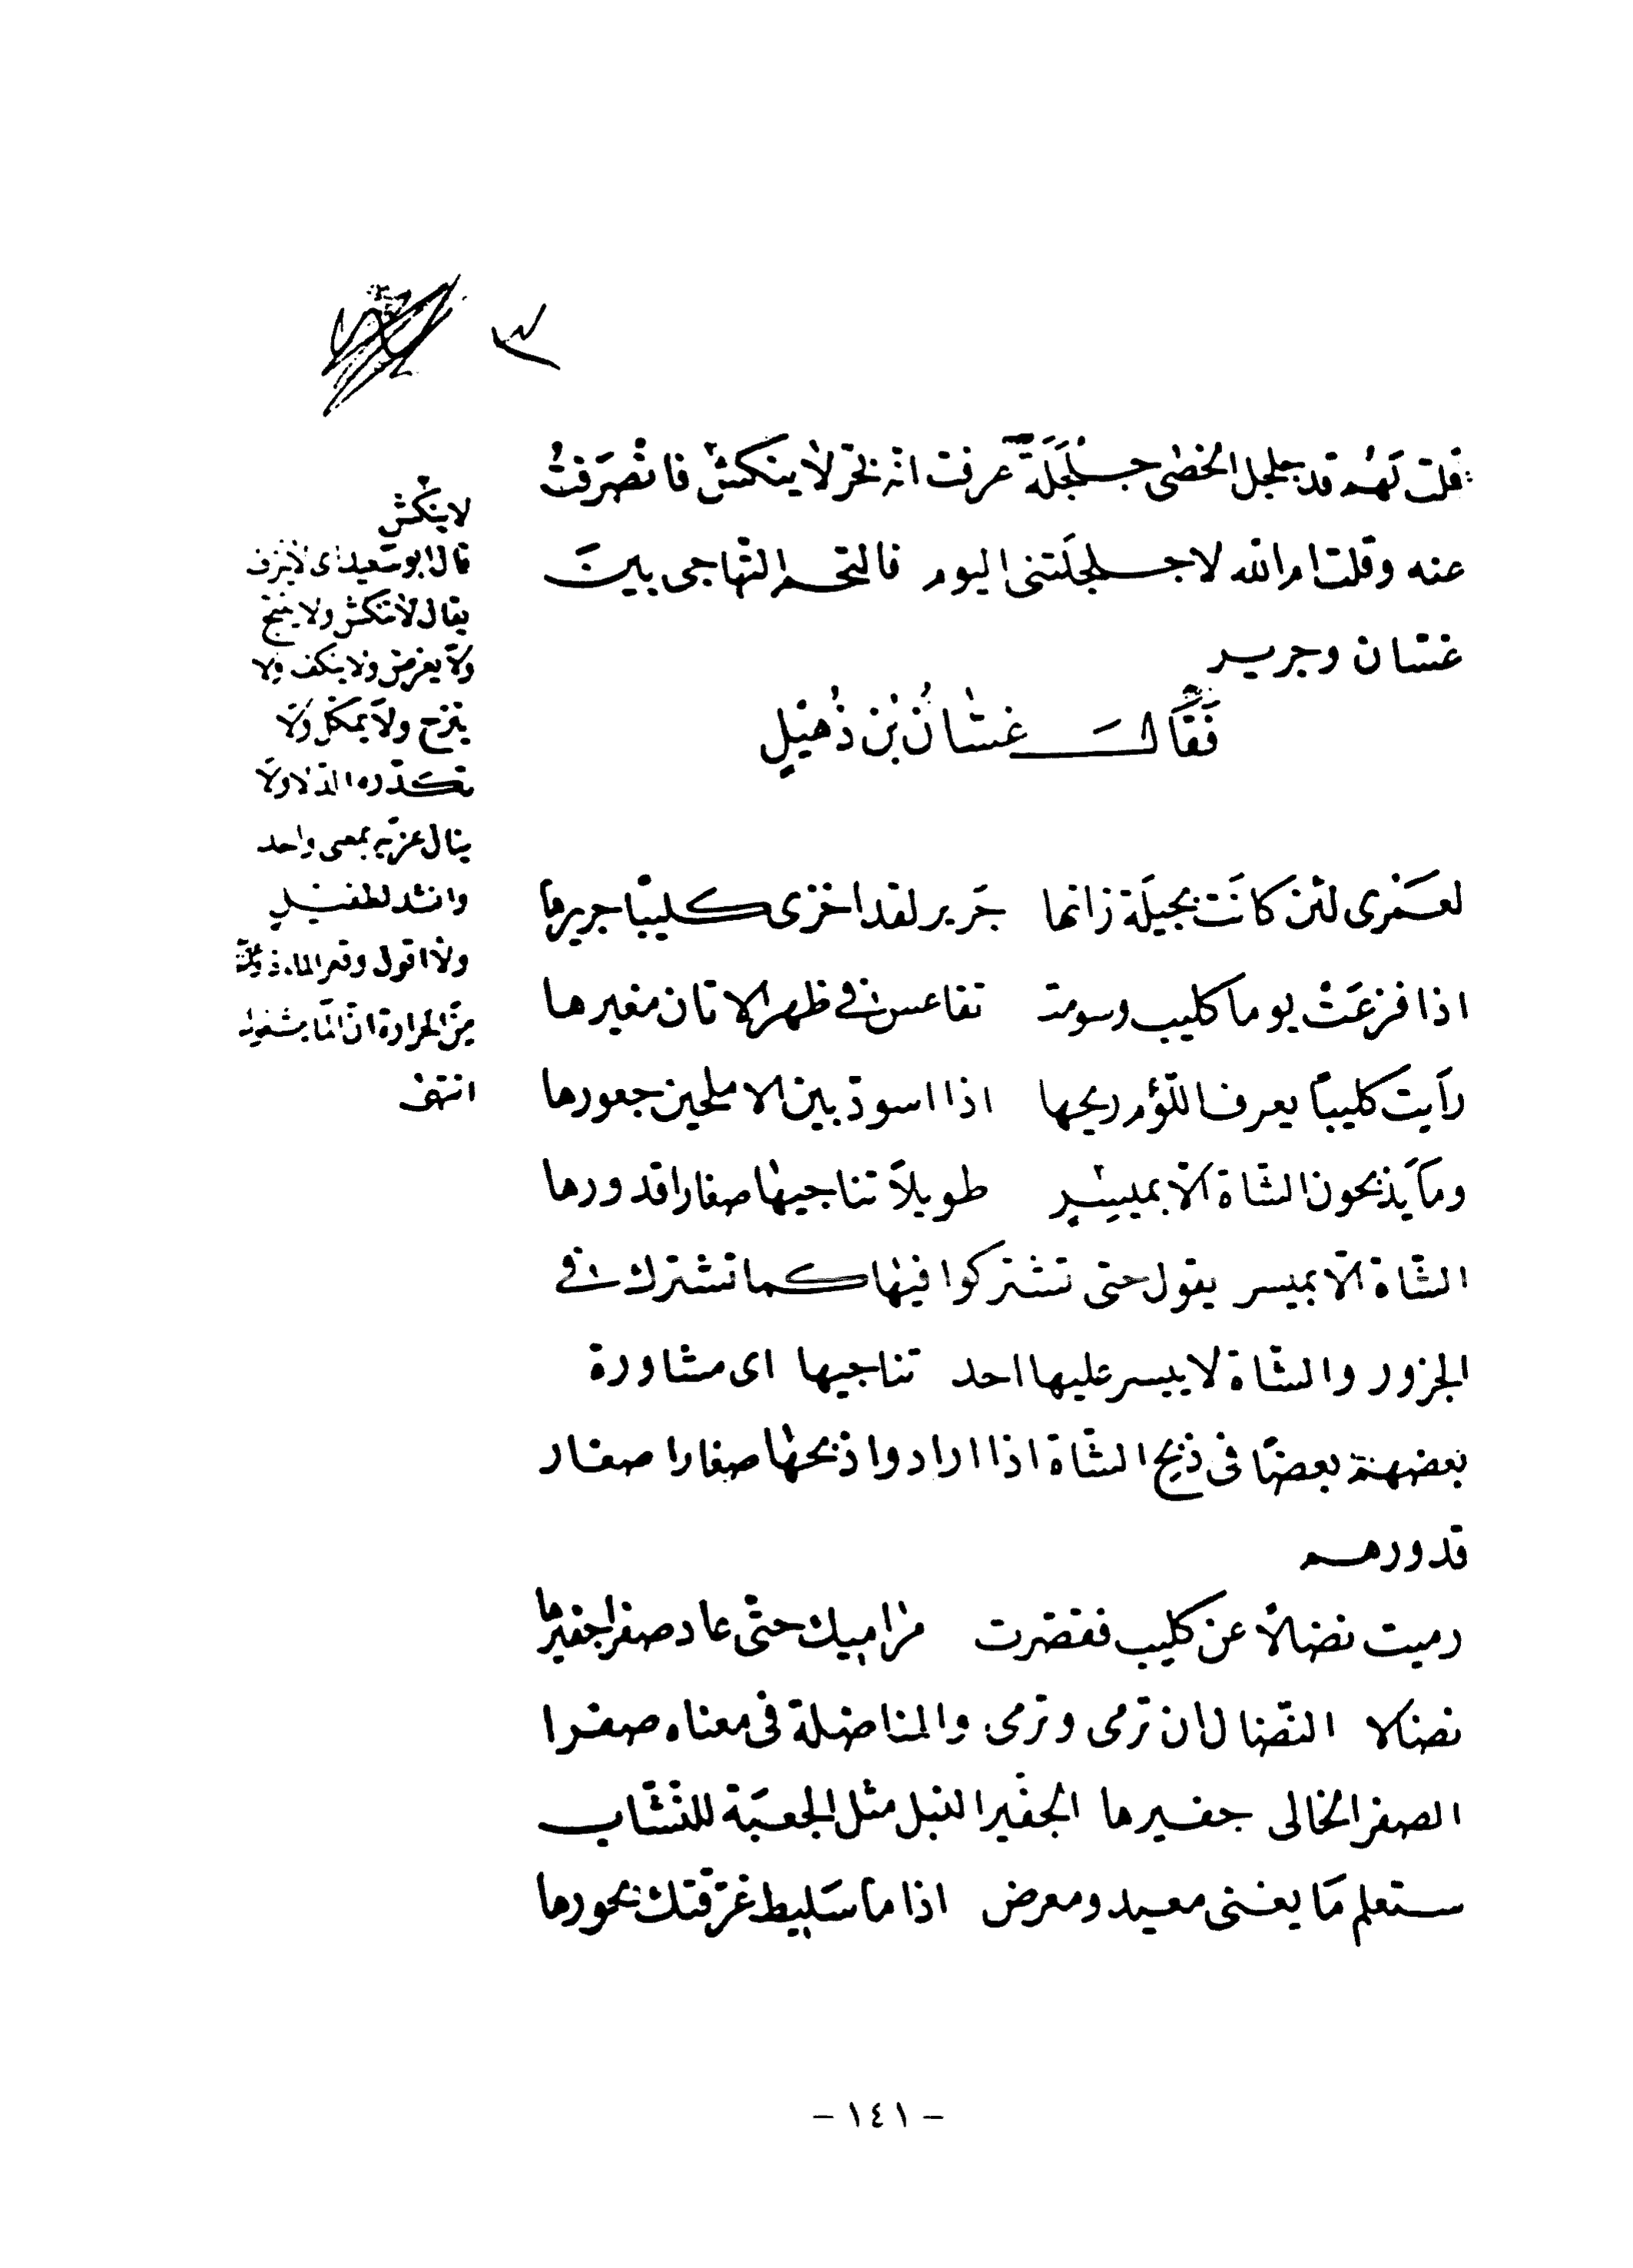 قلت لهم قد جلجل الخطفى جلجلة عرفت انه بحر لا ينكش فانصرفت
عنه وقلت ام الله لا جلجلتنى اليوم فالتحم التهاجى بين
غسان وجرير
فقال غسان بن ذهيل
لعمرى لئن كانت بجيلة زانها جرير لقد اخزى كليبا جريرها
اذا فزعت يوما كليب وسومت تقاعس فى ظهر الاتان مغيرها
رأيت كليبا يعرف اللؤم ريحها اذا اسود بين الاملحين جعورها
وما يذبحون الشاة الا بميسر طويلا تناجيها صغارا قدورها
الشاة الا بميسر يقول حتى تشتركوا فيها كما تشترك فى
الجزور والشاة لا ييسر عليها احد تناجيها اى مشاورة
بعضهم بعضا فى ذبح الشاة اذا ارادوا ذبحها صغارا صغار
قدورهم
رميت نضالا عن كليب فقصرت مراميك حتى عاد صفرا جفيرها
نضالا النضال ان ترمى وترمى والمناضلة فى معناه صفرا
الصفر الخالى جفيرها الجفير النبل مثل الجعبة للنشاب
ستعلم ما يغنى معيد ومعرض اذا ما سليط غرقتك بحورها
لا ينكش
قال ابو سعيد اى لا ينزف
يقال لا ينكش ولا
ولا يغرض ولا ينكف ولا
ينزح ولا يمكل ولا
تكدره الدلاء ولا
ينال عربه بمعنى واحد
وانشد لطفيل
ولا اقول وقعر الماء ذو
من الحرارة ان الما مشغول
انتهى
- ١٤١ -